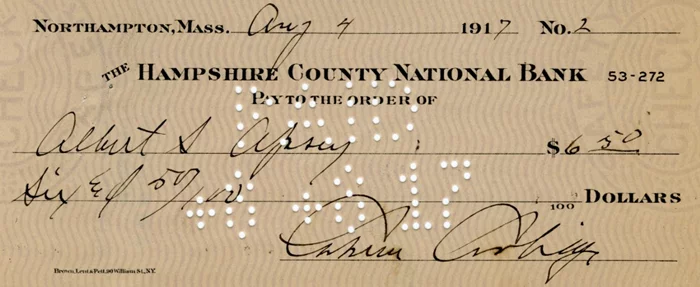 Northampton, Mass. Aug 4 1917 No. 2
The Hampshire County National Bank 53-272
Pay to the order of
PAID
Albert S Apsey $6 50
Six & 50/100 100 Dollars
Calvin Coolidge
Brown, Lent & Pett, 90 William St., N.Y.